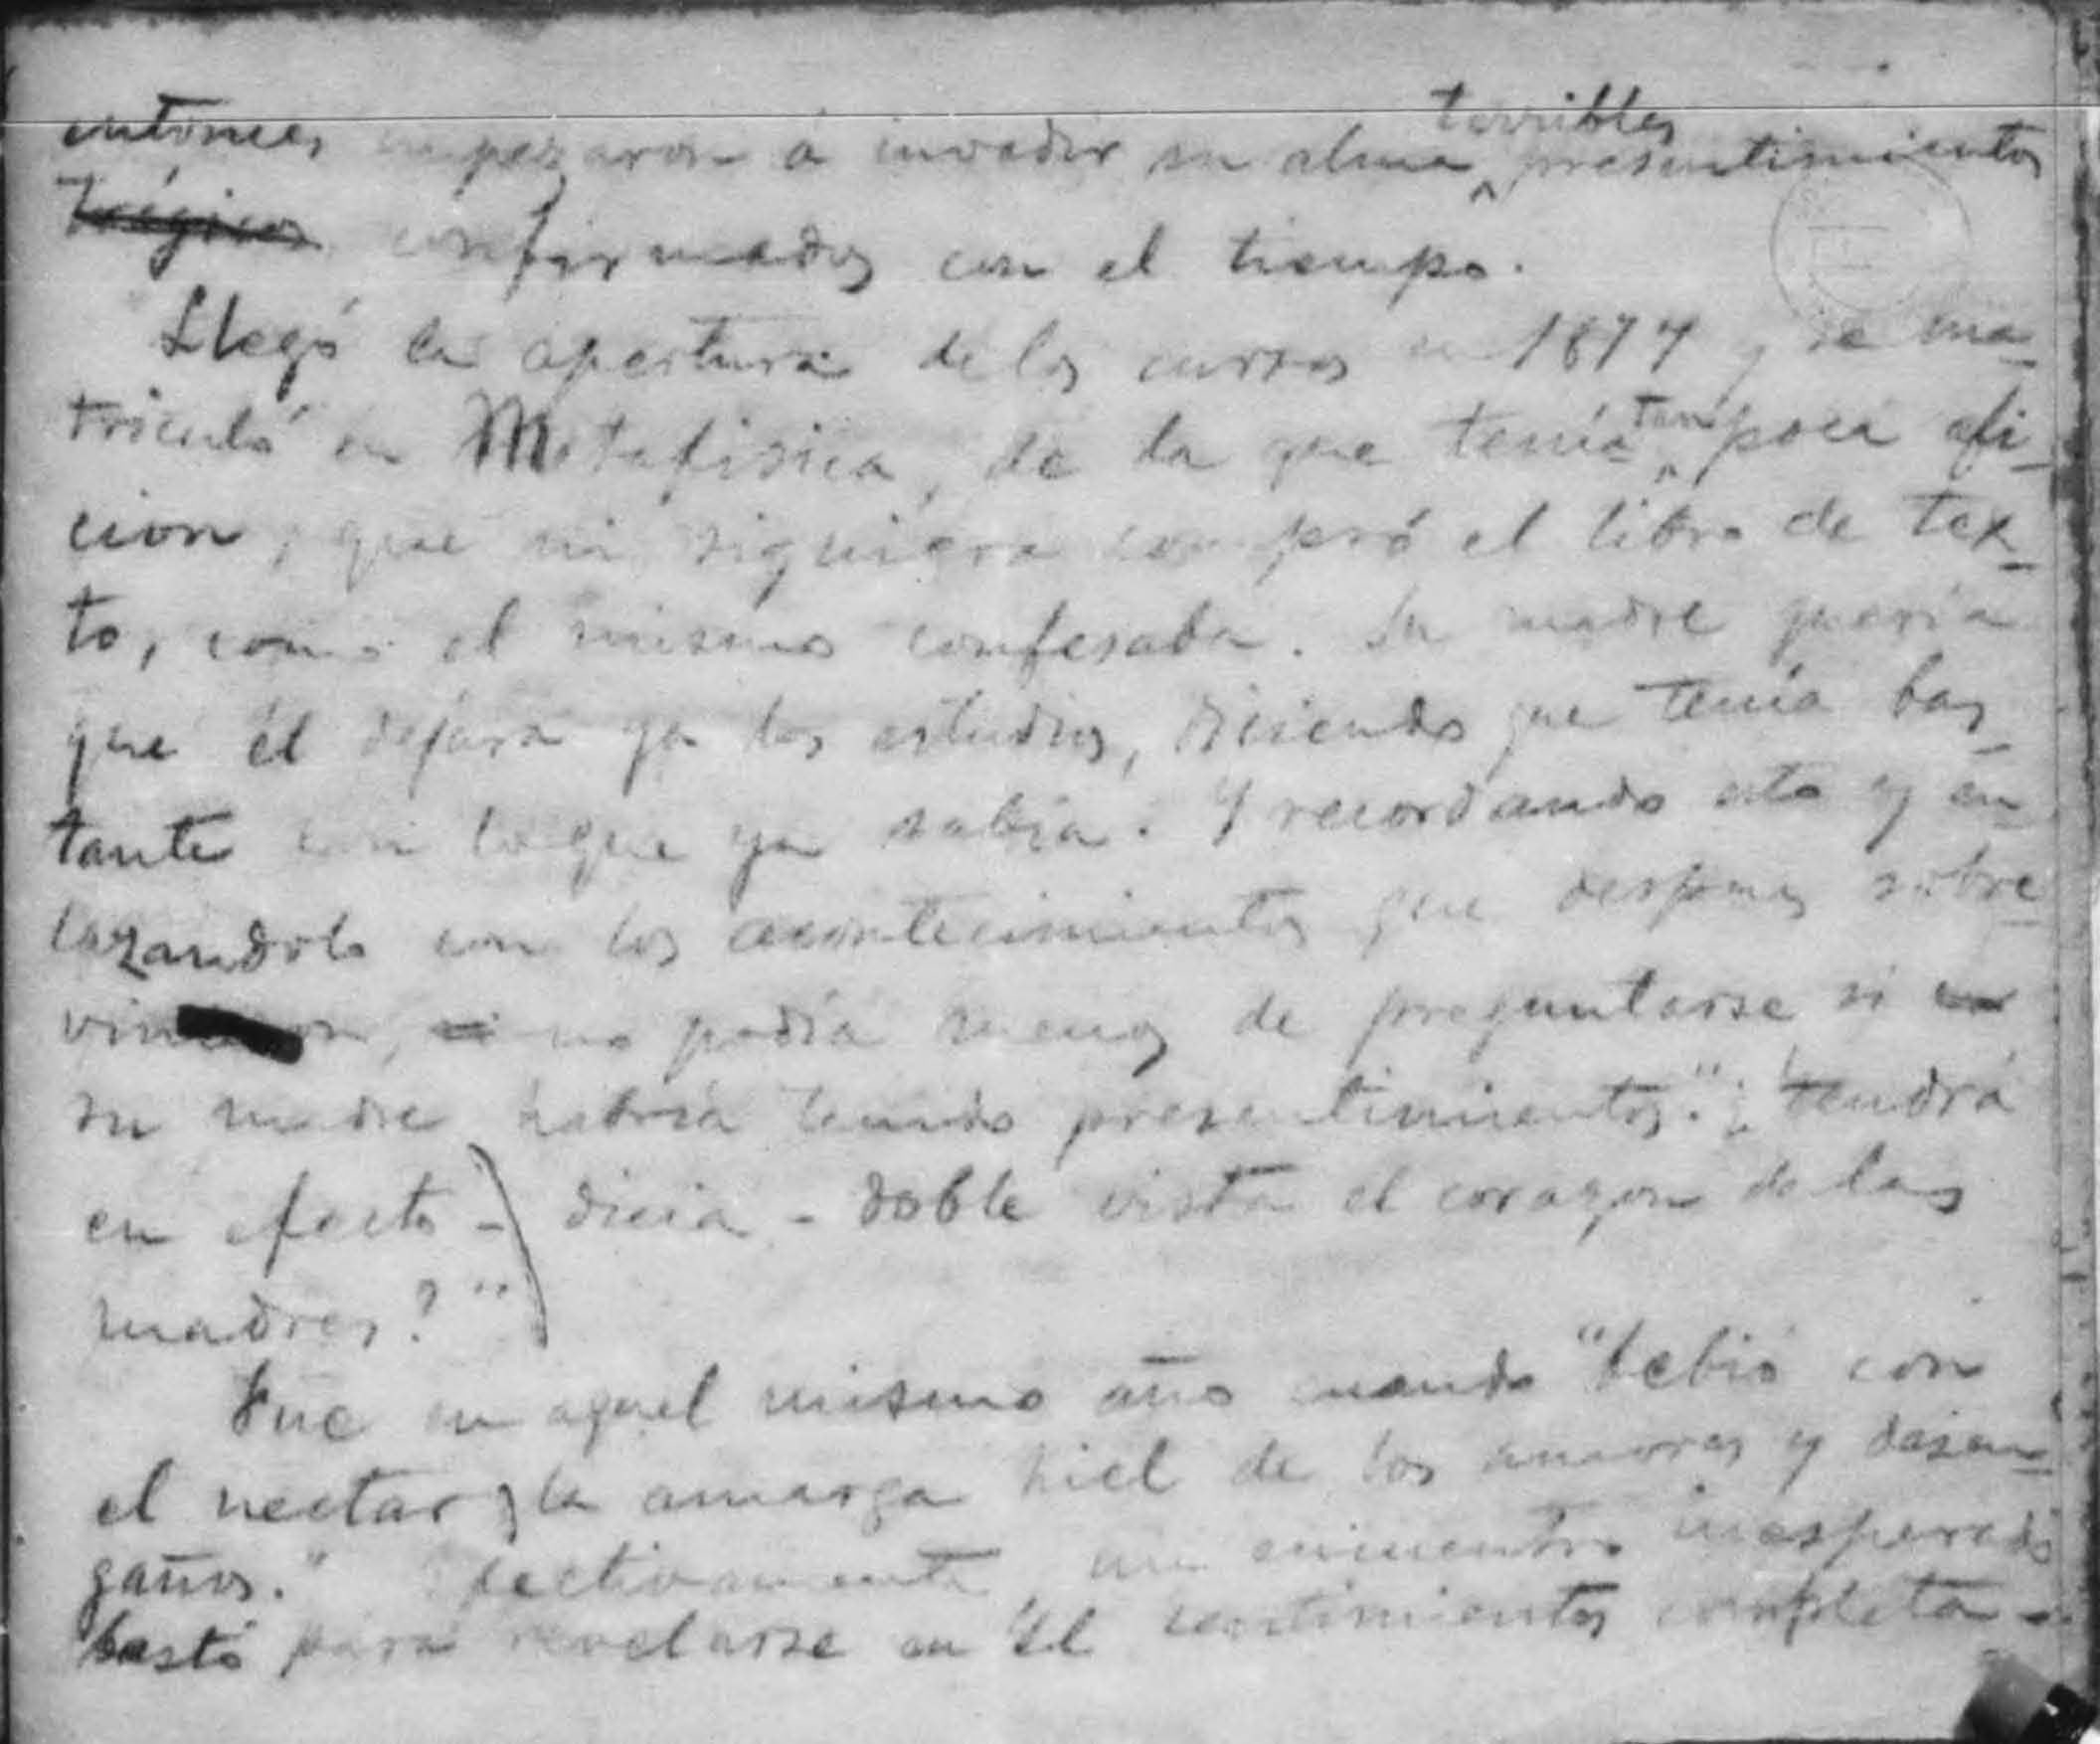 entonces empezaron á invadir su alma terribles presentimientos
trágicos confirmados con el tiempo.
Llegó la apertura de los cursos en 1877 y se ma-
triculó en Metafisica, de la que tenía tan poca afi-
cion, que ni siquiera compró el libro de tex-
to, como el mismo confesaba. Su madre queria
que él dejara ya los estudios, diciendo que tenía bas-
tante con lo que ya sabia. Y recordando esto y en-
lazandolo con los acontecimientos que despues sobre-
vinieron, no podía menos de preguntarse si
su madre habria tenido presentimientos. "¿tendrá
en efecto - dicia - doble vista el corazon de las
madres?"
Fue en aquel mismo año cuando "bebió con
el nectar la amarga hiel de los amores y desen-
gaños." fectivamente un encuentro inesperado
bastó para revelarse en él sentimientos completa-